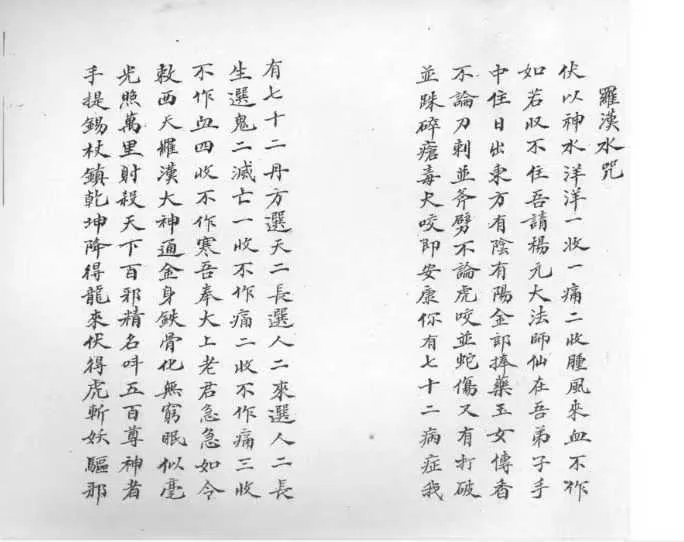 羅漢水咒
伏以神水洋洋一收一痛二收腫風來血不作
如若収不住吾請楊元大法師仙在吾弟子手
中住日出東方有陰有陽金郎捧藥玉女傳香
不論刀刺並斧劈不論虎咬並蛇傷又有打破
並跌碎瘡毒犬咬即安康你有七十二病症我
有七十二丹方選天二長選人二來選人二長
生選鬼二滅亡一收不作痛二收不作痛三收
不作血四收不作寒吾奉大上老君急急如令
敕西天羅漢大神通金身鉄骨化無窮眠似毫
光照萬里射殺天下百邪精名呌五百尊神者
手提錫杖鎮乾坤降得龍來伏得虎斬妖驅邪